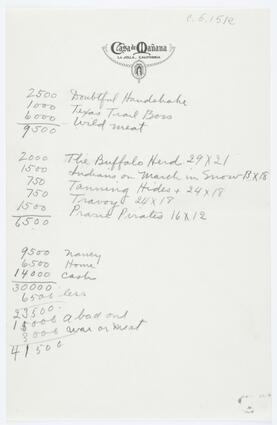 C.5.15.12
Casa de Mañana
LA JOLLA, CALIFORNIA
2500 Doubtful Handshake
1000 Texas Trail Boss
6000 Wild meat
9500
2000 The Buffalo Herd 29X21
1500 Indians on March in Snow 13X18
750 Tanning Hides + 24X18
750 Travoy + 24X18
1500 Prarie Pirates 16X12
6500
9500 Nancy
6500 Home
14000 Cash
30000
6500 less
23500
15000 A bad out
3000 war or meat
41500